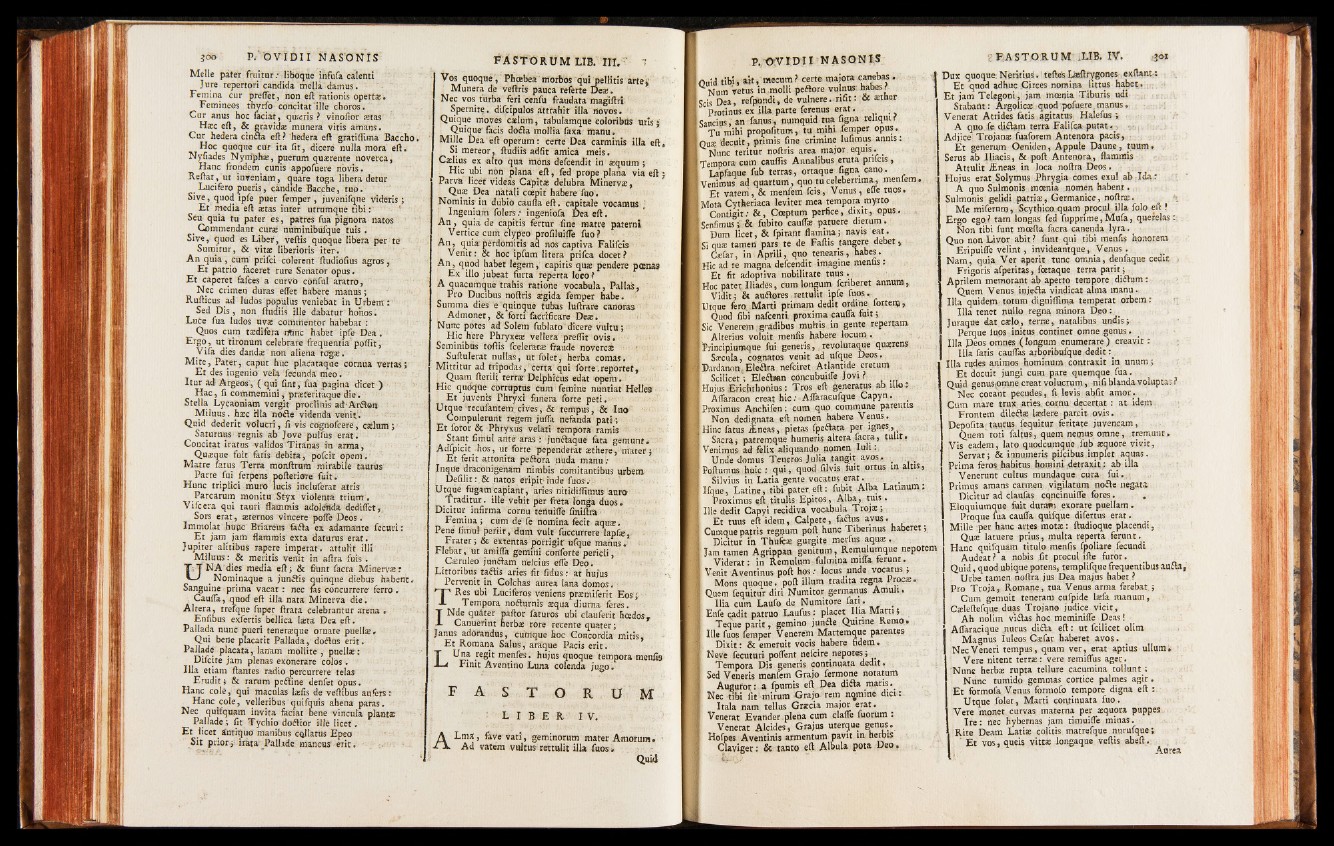 300 P. OVIDII NASONIS
Melle pater fruitur: liboque infusa calenti
Jure repertori candida mella damus.
Femina cur presset, non est rationis opertæ.
Femineos thyrso concitat ille choros.
Cur anus hoc faciat, quæris? vinosior ætas
Hæc est, & gravidæ munera vitis amans.
Cur hedera cincta est? hedera est gratissima Baccho.
Hoc quoque cur ita sit, dicere nulla mora est.
Nysiades Nymphæ, puerum quærente noverca,
Hanc frondem cunis apposuere novis.
Restat, ut inveniam, quare toga libera detur
Lucifero pueris, candide Bacche, tuo.
Sive, quod ipse puer semper, juvenisque videris;
Et media est ætas inter utrumque tibi:
Seu quia tu pater es, patres sua pignora natos
Commendant curæ numinibusque tuis.
Sive, quod es Liber, vestis quoque libera per te
Sumitur, & vitæ liberioris iter.
An quia, cum prisci colerent studiosius agros,
Et patrio faceret rure Senator opus.
Et caperet fasces a curvo consul aratro,
Nec crimen duras esset habere manus;
Rusticus ad ludos populus veniebat in Urbem:
Sed Dis, non studiis ille dabatur honos.
Luce sua ludos uvæ commentor habebat:
Quos cum tædifera nunc habet ipse Dea.
Ergo, ut tironum celebrare frequentia possit,
Visa dies dandæ non aliena togæ.
Mite, Pater, caput huc placataque cornua vertas;
Et des ingenio vela secunda meo.
Itur ad Argeos, ( qui sint, sua pagina dicet )
Hac, si commemini, præteritaque die.
Stella Lycaoniam vergit proclinis ad Arcton
Miluus. hæc illa nocte videnda venit.
Quid dederit volucri, si vis cognoscere, cælum;
Saturnus regnis ab Jove pulsus erat.
Concitat iratus validos Titanas in arma,
Quæque fuit fatis debita, poscit opem.
Matre satus Terra monstrum mirabile taurus
Parte sui serpens posteriore fuit.
Hunc triplici muro lucis incluserat atris
Parcarum monitu Styx violenta trium.
Viscera qui tauri flammis adolenda dedisset,
Sors erat, æternos vincere posse Deos.
Immolat hunc Briareus facta ex adamante securi:
Et jam jam flammis exta daturus erat.
Jupiter alitibus rapere imperat. attulit illi
Miluus: & meritis venit in astra suis.
UNA dies media est; & fiunt sacra Minervæ:
Nominaque a junctis quinque diebus habent.
Sanguine prima vacat: nec fas concurrere ferro.
Causa, quod est illa nata Minerva die.
Altera, tresque super strata celebrantur arena.
Ensibus exsertis bellica læta Dea est.
Pallada nunc pueri teneræque ornate puellæ.
Qui bene placarit Pallada, doctus erit.
Pallade placata, lanam mollite, puellæ:
Discite jam plenas exonerare colos.
Illa etiam stantes radio percurrere telas
Erudit; & rarum pectine denset opus.
Hanc cole, qui maculas læsis de vestibus aufers:
Hanc cole, velleribus quisquis ahena paras.
Nec quisquam invita faciat bene vincula plantæ
Pallade; sit Tychio doctior ille licet.
Et licet antiquo manibus collatus Epeo
Sit prior; irata Pallade mancus erit.
FASTORUM LIB. III.
Vos quoque, Phœbea morbos qui pellitis arte,
Munera de vestris pauca referte Deæ.
Nec vos turba feri censu fraudata magistri
Spernite. discipulos attrahit illa novos.
Quique moves cælum, tabulamque coloribus uris;
Quique facis docta mollia saxa manu.
Mille Dea est operum: certe Dea carminis illa est.
Si mereor, studiis adsit amica meis.
Cælius ex alto qua mons descendit in æquum;
Hic ubi non plana est, sed prope plana via est;
Parva licet videas Capitæ delubra Minervæ,
Quæ Dea natali cœpit habere suo.
Nominis in dubio causa est. capitale vocamus
Ingenium solers: ingeniosa Dea est.
An, quia de capitis fertur sine matre paterni
Vertice cum clypeo prosiluisse suo?
An, quia perdomitis ad nos captiva Faliscis
Venit: & hoc ipsum litera prisca docet?
An, quod habet legem, capitis quæ pendere pœnas
Ex illo jubeat furta reperta loco?
A quacumque trahis ratione vocabula, Pallas,
Pro Ducibus nostris ægida semper habe.
Summa dies e quinque tubas lustrare canoras
Admonet, & forti sacrificare Deæ.
Nunc potes ad Solem sublato dicere vultu;
Hic here Phryxeæ vellera pressit ovis.
Seminibus tostis sceleratæ fraude novercæ
Sustulerat nullas, ut solet, herba comas.
Mittitur ad tripodas, certa qui sorte reportet,
Quam sterili terræ Delphicus edat opem.
Hic quoque corruptus cum semine nuntiat Helles
Et juvenis Phryxi funera sorte peti.
Utque recusantem cives, & tempus, & Ino
Compulerunt regem jussa nefanda pati;
Et soror & Phryxus velati tempora ramis
Stant simul ante aras: junctaque fata gemunt.
Adspicit hos, ut forte pependerat æthere, mater;
Et ferit attonita pectora nuda manu:
Inque draconigenam nimbis comitantibus urbem
Desilit: & natos eripit inde suos.
Utque fugam capiant, aries nitidissimus auro
Traditur. ille vehit per freta longa duos.
Dicitur infirma cornu tenuisse sinistra
Femina; cum de se nomina fecit aquæ.
Pene simul periit, dum vult succurrere lapsæ,
Frater; & extentas porrigit usque manus.
Flebat, ut amissa gemini consorte pericli,
Cæruleo junctam nescius esse Deo.
Littoribus tactis aries fit sidus: at hujus
Pervenit in Colchas aurea lana domos.
TRes ubi Luciferos veniens præmiserit Eos;
Tempora nocturnis æqua diurna feres.
INde quater pastor saturos ubi clauserit hœdos,
Canuerint herbæ rore recente quater:
Janus adorandus, cumque hoc Concordia mitis,
Et Romana Salus, araque Pacis erit.
LUna regit menses. hujus quoque tempora mensis
Finit Aventino Luna colenda jugo.
FASTORUM
LIBER IV.
ALma, fave vati, geminorum mater Amorum.
Ad vatem vultus rettulit illa suos.
Quid
P. OVIDII NASONIS
Quid tibi, ait, mecum? certe majora canebas.
Num vetus in molli pectore vulnus habes?
Scis Dea, respondi, de vulnere. risit: & æther
Protinus ex illa parte serenus erat.
Saucius, an sanus, numquid tua signa reliqui?
Tu mihi propositum, tu mihi semper opus.
Quæ decuit, primis sine crimine lusimus annis:
Nunc teritur nostris area major equis.
Tempora cum causis Annalibus eruta priscis,
Lapsaque sub terras, ortaque signa cano.
Venimus ad quartum, quo tu celeberrima, mensem.
Et vatem, & mensem scis, Venus, esse tuos.
Mota Cytheriaca leviter mea tempora myrto
Contigit: &, Cœptum perfice, dixit, opus.
Sensimus; & subito causæ patuere dierum.
Dum licet, & spirant flamina; navis eat.
Si qua tamen pars te de Fastis tangere debet,
Cæsar, in Aprili, quo tenearis, habes.
Hic ad te magna descendit imagine mensis:
Et fit adoptiva nobilitate tuus.
Hoc pater Iliades, cum longum scriberet annum,
Vidit; & auctores rettulit ipse suos.
Utque fero Marti primam dedit ordine sortem,
Quod sibi nascenti proxima causa fuit;
Sic Venerem gradibus multis in gente repertam
Alterius voluit mensis habere locum.
Principiumque sui generis, revolutaque quærens
Sæcula, cognatos venit ad usque Deos.
Dardanon Electra nesciret Atlantide cretum
Scilicet; Electran concubuisse Jovi?
Hujus Erichthonius: Tros est generatus ab illo:
Assaracon creat hic: Assaracusque Capyn.
Proximus Anchisen: cum quo commune parentis
Non dedignata est nomen habere Venus.
Hinc satus Æneas, pietas spectata per ignes,
Sacra, patremque humeris altera sacra, tulit.
Venimus ad felix aliquando nomen Iuli:
Unde domus Teucros Julia tangit avos.
Postumus huic: qui, quod silvis fuit ortus in altis,
Silvius in Latia gente vocatus erat.
Isque, Latine, tibi pater est: subit Alba Latinum:
Proximus est titulis Epitos, Alba, tuis.
Ille dedit Capyi recidiva vocabula Trojæ;
Et tuus est idem, Calpete, factus avus.
Cumque patris regnum post hunc Tiberinus haberet;
Dicitur in Thuscæ gurgite mersus aquæ.
Jam tamen Agrippan genitum, Remulumque nepotem
Viderat: in Remulum fulmina missa ferunt.
Venit Aventinus post hos: locus unde vocatus;
Mons quoque. post illum tradita regna Procæ.
Quem sequitur diri Numitor germanus Amuli.
Ilia cum Lauso de Numitore sati.
Ense cadit patruo Lausus: placet Ilia Marti;
Teque parit, gemino juncte Quirine Remo.
Ille suos semper Venerem Martemque parentes
Dixit: & emeruit vocis habere fidem.
Neve secuturi possent nescire nepotes;
Tempora Dis generis continuata dedit.
Sed Veneris mensem Grajo sermone notatum
Auguror: a spumis est Dea dicta maris.
Nec tibi sit mirum Grajo rem nomine dici:
Itala nam tellus Græcia major erat.
Venerat Evander plena cum classe suorum:
Venerat Alcides, Grajus uterque genus.
Hospes Aventinis armentum pavit in herbis
Claviger: & tanto est Albula pota Deo.
FASTORUM LIB. IV. 301
Dux quoque Neritius. testes Læstrygones exstant:
Et quod adhuc Circes nomina littus habet.
Et jam Telegoni, jam mœnia Tiburis udi
Stabant: Argolicæ quod posuere manus.
Venerat Atrides fatis agitatus Halesus;
A quo se dictam terra Falisca putat.
Adjice Trojanæ suasorem Antenora pacis,
Et generum Oeniden, Appule Daune, tuum.
Serus ab Iliacis, & post Antenora, flammis
Attulit Æneas in loca nostra Deos.
Hujus erat Solymus Phrygia comes exul ab Ida:
A quo Sulmonis mœnia nomen habent.
Sulmonis gelidi patriæ, Germanice, nostræ.
Me miserum, Scythico quam procul illa solo est!
Ergo ego? tam longas sed supprime, Musa, querelas:
Non tibi sunt mœsta sacra canenda lyra.
Quo non Livor abit? sunt qui tibi mensis honorem
Eripuisse velint, invideantque, Venus.
Nam, quia Ver aperit tunc omnia, densaque cedit
Frigoris asperitas, fœtaque terra parit;
Aprilem memorant ab aperto tempore dictum:
Quem Venus injecta vindicat alma manu.
Illa quidem totum dignissima temperat orbem:
Illa tenet nullo regna minora Deo:
Juraque dat cælo, terræ, natalibus undis;
Perque suos initus continet omne genus.
Illa Deos omnes (longum enumerare) creavit:
Illa satis causas arboribusque dedit:
Illa rudes animos hominum contraxit in unum;
Et docuit jungi cum pare quemque sua.
Quid genus omne creat volucrum, nisi blanda voluptas?
Nec coeant pecudes, si levis absit amor.
Cum mare trux aries cornu decertat: at idem
Frontem dilectæ lædere parcit ovis.
Deposita taurus sequitur feritate juvencam,
Quem toti saltus, quem nemus omne, tremunt.
Vis eadem, lato quodcumque sub æquore vivit,
Servat; & innumeris piscibus implet aquas.
Prima feros habitus homini detraxit: ab illa
Venerunt cultus mundaque cura sui.
Primus amans carmen vigilatum nocte negata
Dicitur ad clausas concinuisse fores.
Eloquiumque fuit duram exorare puellam.
Proque sua causa quisque disertus erat.
Mille per hanc artes motæ: studioque placendi,
Quæ latuere prius, multa reperta ferunt.
Hanc quisquam titulo mensis spoliare secundi
Audeat? a nobis sit procul iste furor.
Quid, quod ubique potens, templisque frequentibus aucta,
Urbe tamen nostra jus Dea majus habet?
Pro Troja, Romane, tua Venus arma ferebat;
Cum gemuit teneram cuspide læsa manum,
Cælestesque duas Trojano judice vicit,
Ah nolim victas hoc meminisse Deas!
Assaracique nurus dicta est: ut scilicet olim
Magnus Iuleos Cæsar haberet avos.
Nec Veneri tempus, quam ver, erat aptius ullum.
Vere nitent terræ: vere remissus ager.
Nunc herbæ rupta tellure cacumina tollunt:
Nunc tumido gemmas cortice palmes agit.
Et formosa Venus formoso tempore digna est:
Utque solet, Marti continuata suo.
Vere monet curvas materna per æquora puppes
Ire: nec hybernas jam timuisse minas.
Rite Deam Latiæ colitis matresque nurusque;
Et vos, queis vittæ longaque vestis abest.
Aurea